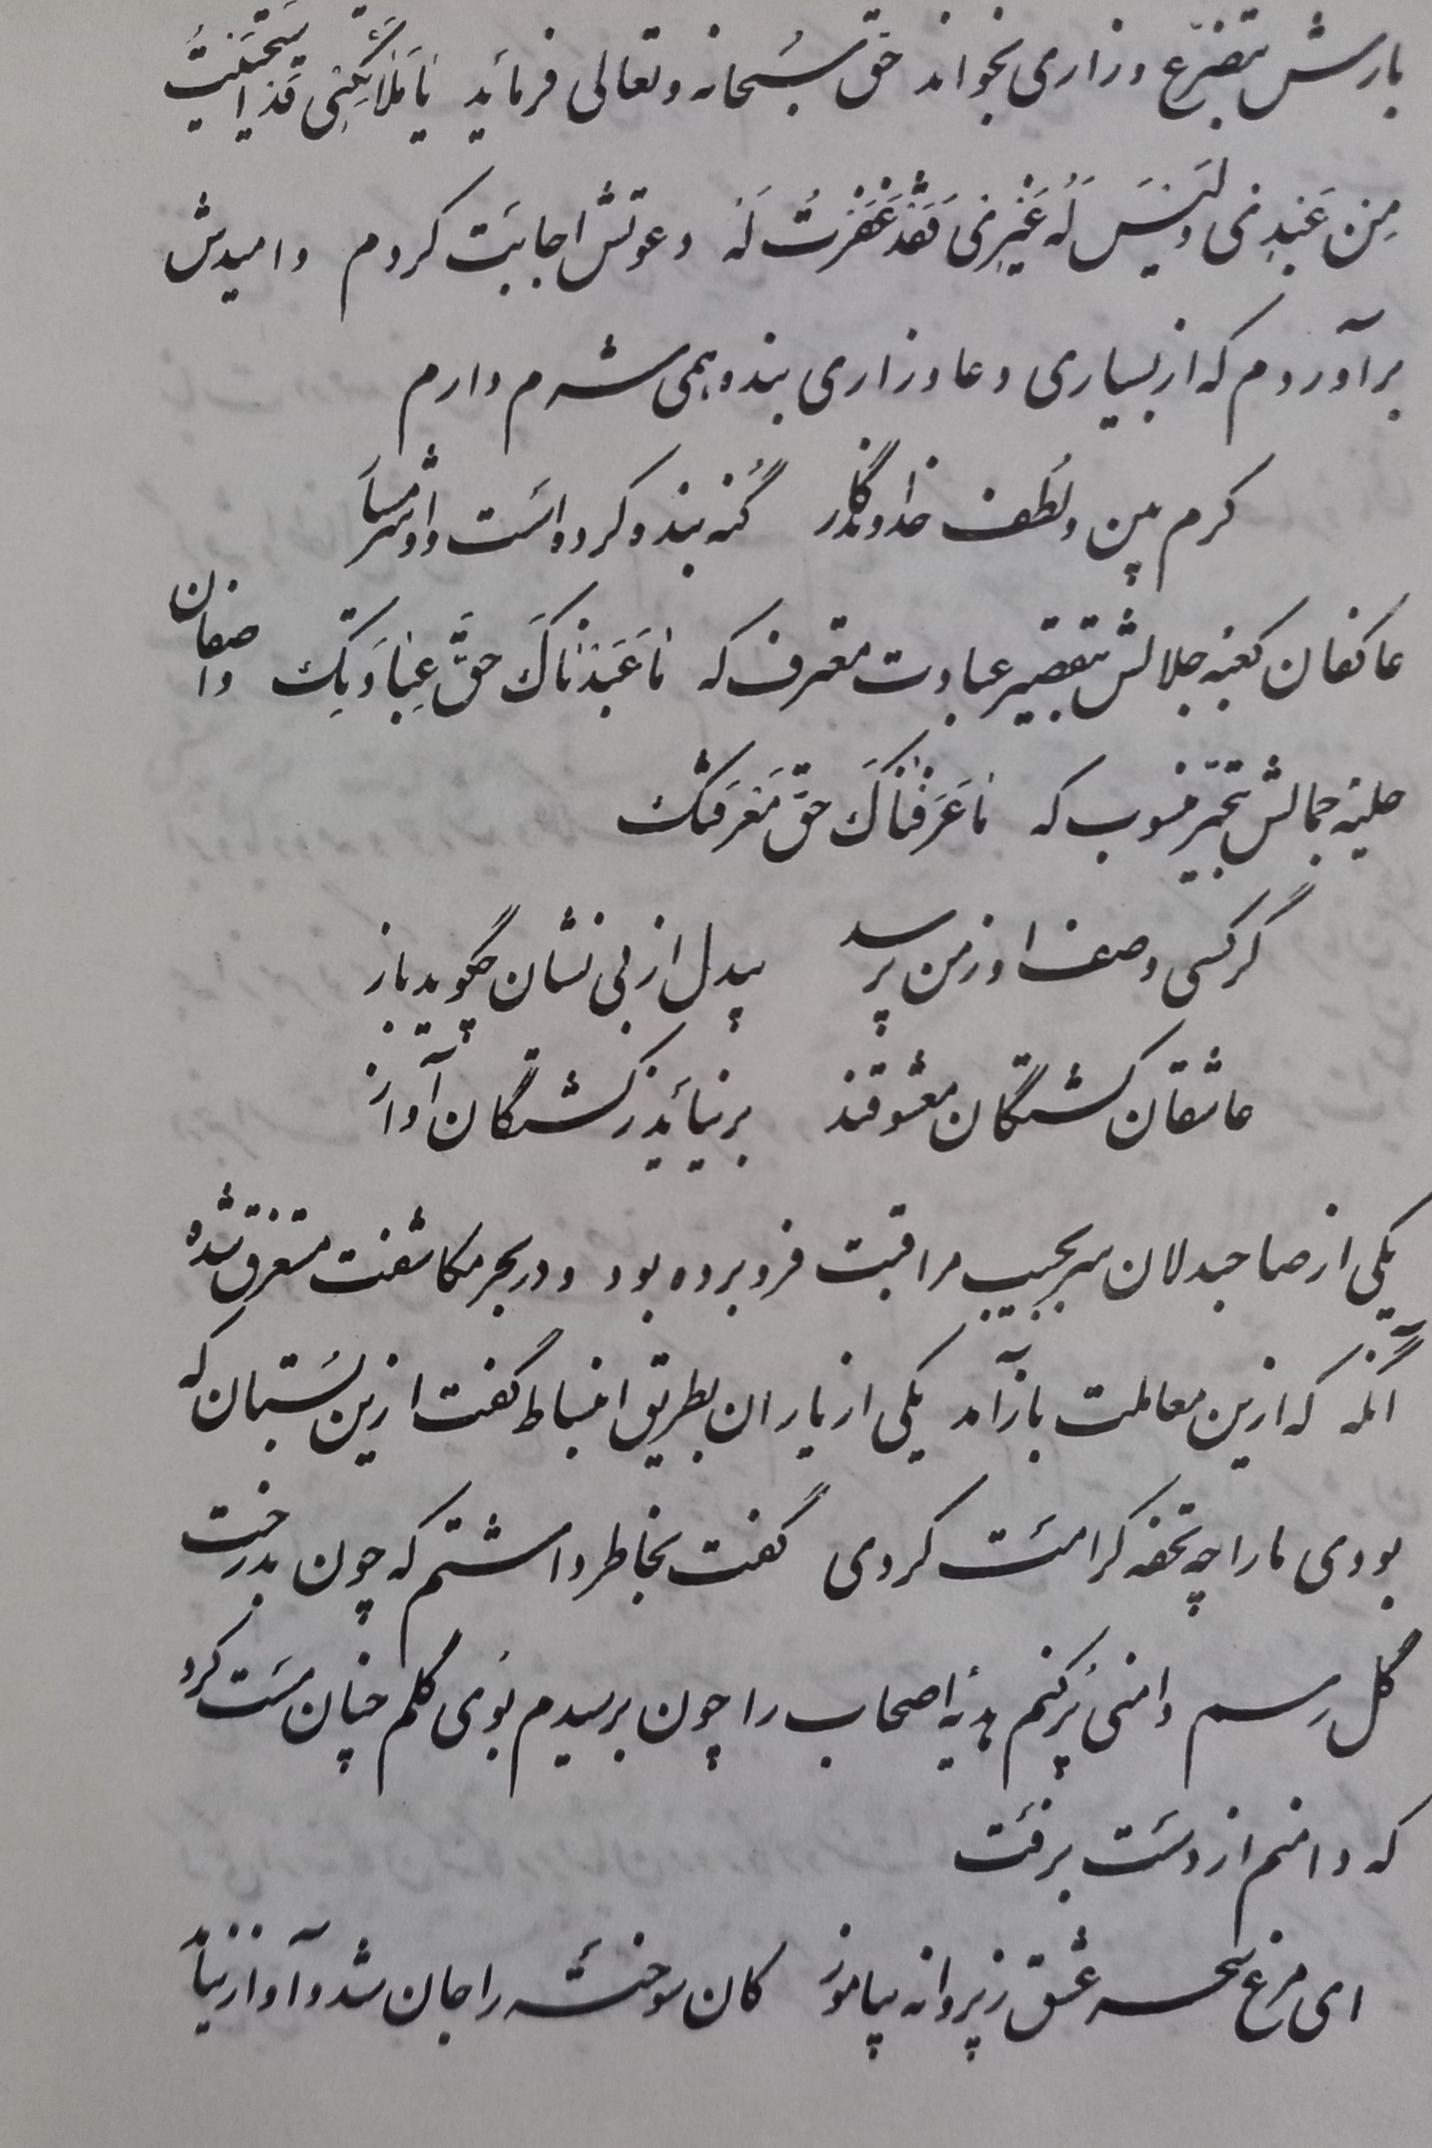 بارش بتضرّع و زاری بخواند حق سُبحانه و تعالی فرمائید یا مَلائِکَتِی قَدِ استَحیَیتُ
مِن عَبدِی وَ لَیسَ لَهُ غَیرِی فَقَد غَفَرتُ لَه دعوتش اجابَت کردم و امیدش
برآوردم که از بسیاری دعا و زاری بنده همی شرم دارم
کرم بین و لُطف خداوندگار گُنه بنده کرده است و او شرمسار
عاکفان کعبهٔ جلالش بتقصیر عبادت معترف که ما عَبَدناکَ حَقَّ عِبادَتِک و اصفان
حلیهٔ جمالش بتحیّر منسوب که ما عَرَفناکَ حَقّ مَعرَفتک
گر کسی وصف او ز من پرسد بیدل از بی نشان چگوید باز
عاشقان کشتگان معشوقند برنیاید ز کشتگان آواز
یکی از صاحبدلان سر بجیب مراقبت فرو برده بود و در بحر مکاشفت مستغرق شده
آنگه که ازین معاملت باز آمد یکی از یاران بطریق انبساط گفت ازین بُستان که
بودی ما را چه تحفه کرامت کردی گفت بخاطر داشتم که چون بدرخت
گل رسم دامنی پُر کنم هدیهٔ اصحاب را چون برسیدم بوی گلم چنان مست کرد
که دامنم از دست برفت
ای مرغ سحر عشق ز پروانه بیاموز کان سوخته را جان شد و آواز نیامد